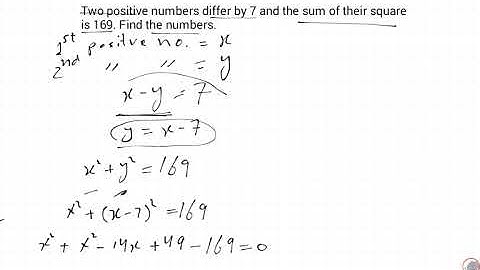 Two positive numbers differ by 7 and the sum of their square
is 169. Find the numbers.
1st positive no. = x
2nd " " = y
x - y = 7
y = x - 7
x² + y² = 169
x² + (x-7)² = 169
x² + x² - 14x + 49 - 169 = 0